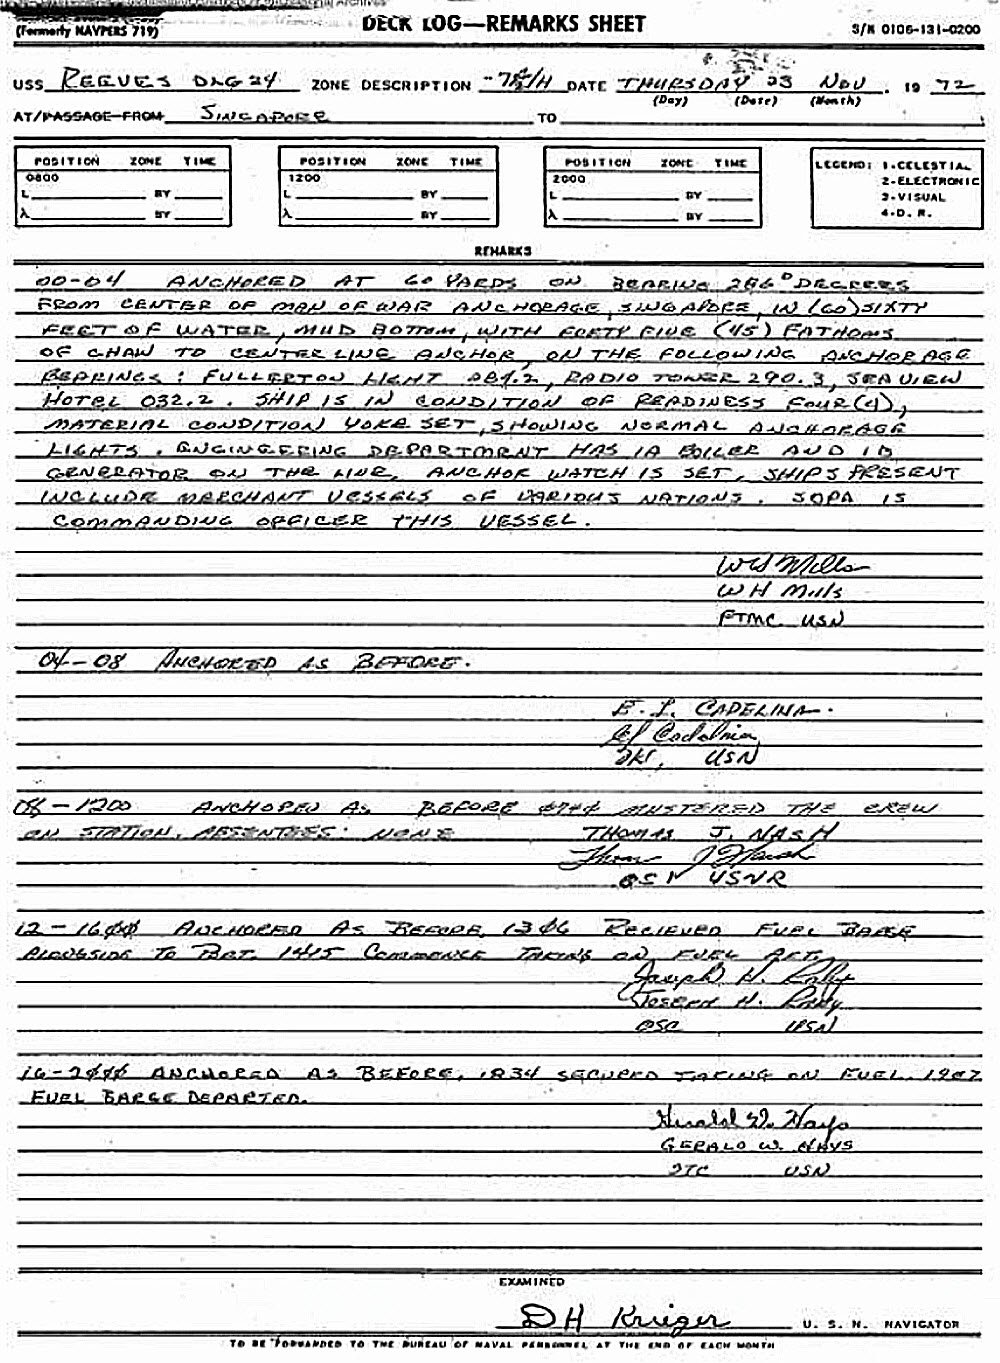 (Formerly NAVPERS 719)
DECK LOG—REMARKS SHEET
S/N 0106-131-0200
USS REEVES DLG 24 ZONE DESCRIPTION DATE THURSDAY 23 NOV . 19 72
(Day) (Date) (Month)
AT/PASSAGE FROM SINGAPORE TO
POSITION ZONE TIME
0800
L BY
λ BY
POSITION ZONE TIME
1200
L BY
λ BY
POSITION ZONE TIME
2000
L BY
λ BY
LEGEND: 1-CELESTIAL
2-ELECTRONIC
3-VISUAL
4-D. R.
REMARKS
00-04 ANCHORED AT 60 YARDS ON BEARING 286° DEGREES
FROM CENTER OF MAN OF WAR ANCHORAGE, SINGAPORE, IN (60) SIXTY
FEET OF WATER, MUD BOTTOM, WITH FORTY FIVE (45) FATHOMS
OF CHAIN TO CENTER LINE ANCHOR, ON THE FOLLOWING ANCHORAGE
BEARINGS: FULLERTON LIGHT RADIO TOWER 290.3, SEA VIEW
HOTEL 032.2. SHIP IS IN CONDITION OF READINESS FOUR (4),
MATERIAL CONDITION YOKE SET, SHOWING NORMAL ANCHORAGE
LIGHTS. ENGINEERING DEPARTMENT HAS 1A BOILER AND
GENERATOR ON THE LINE. ANCHOR WATCH IS SET. SHIPS PRESENT
INCLUDE MERCHANT VESSELS OF VARIOUS NATIONS. SOPA IS
COMMANDING OFFICER THIS VESSEL.
WH Mills
WH Mills
FTMC USN
04-08 ANCHORED AS BEFORE.
E. L. CADELINA.
USN
08-1200 ANCHORED AS BEFORE MUSTERED THE CREW
ON STATION, ABSENTEES: NONE THOMAS J. NASH
Thomas J Nash
USNR
12-1600 ANCHORED AS BEFORE, 1306 RECIEVED FUEL BARGE
ALONGSIDE TO PORT. 1415 COMMENCE TAKING ON FUEL AFT.
Joseph H.
JOSEPH H.
OSC USN
16-2000 ANCHORED AS BEFORE. 1834 SECURED TAKING ON FUEL. 1907
FUEL BARGE DEPARTED.
Gerald W. Hays
GERALD W. HAYS
STC USN
EXAMINED
DH Krieger U. S. N. NAVIGATOR
TO BE FORWARDED TO THE BUREAU OF NAVAL PERSONNEL AT THE END OF EACH MONTH